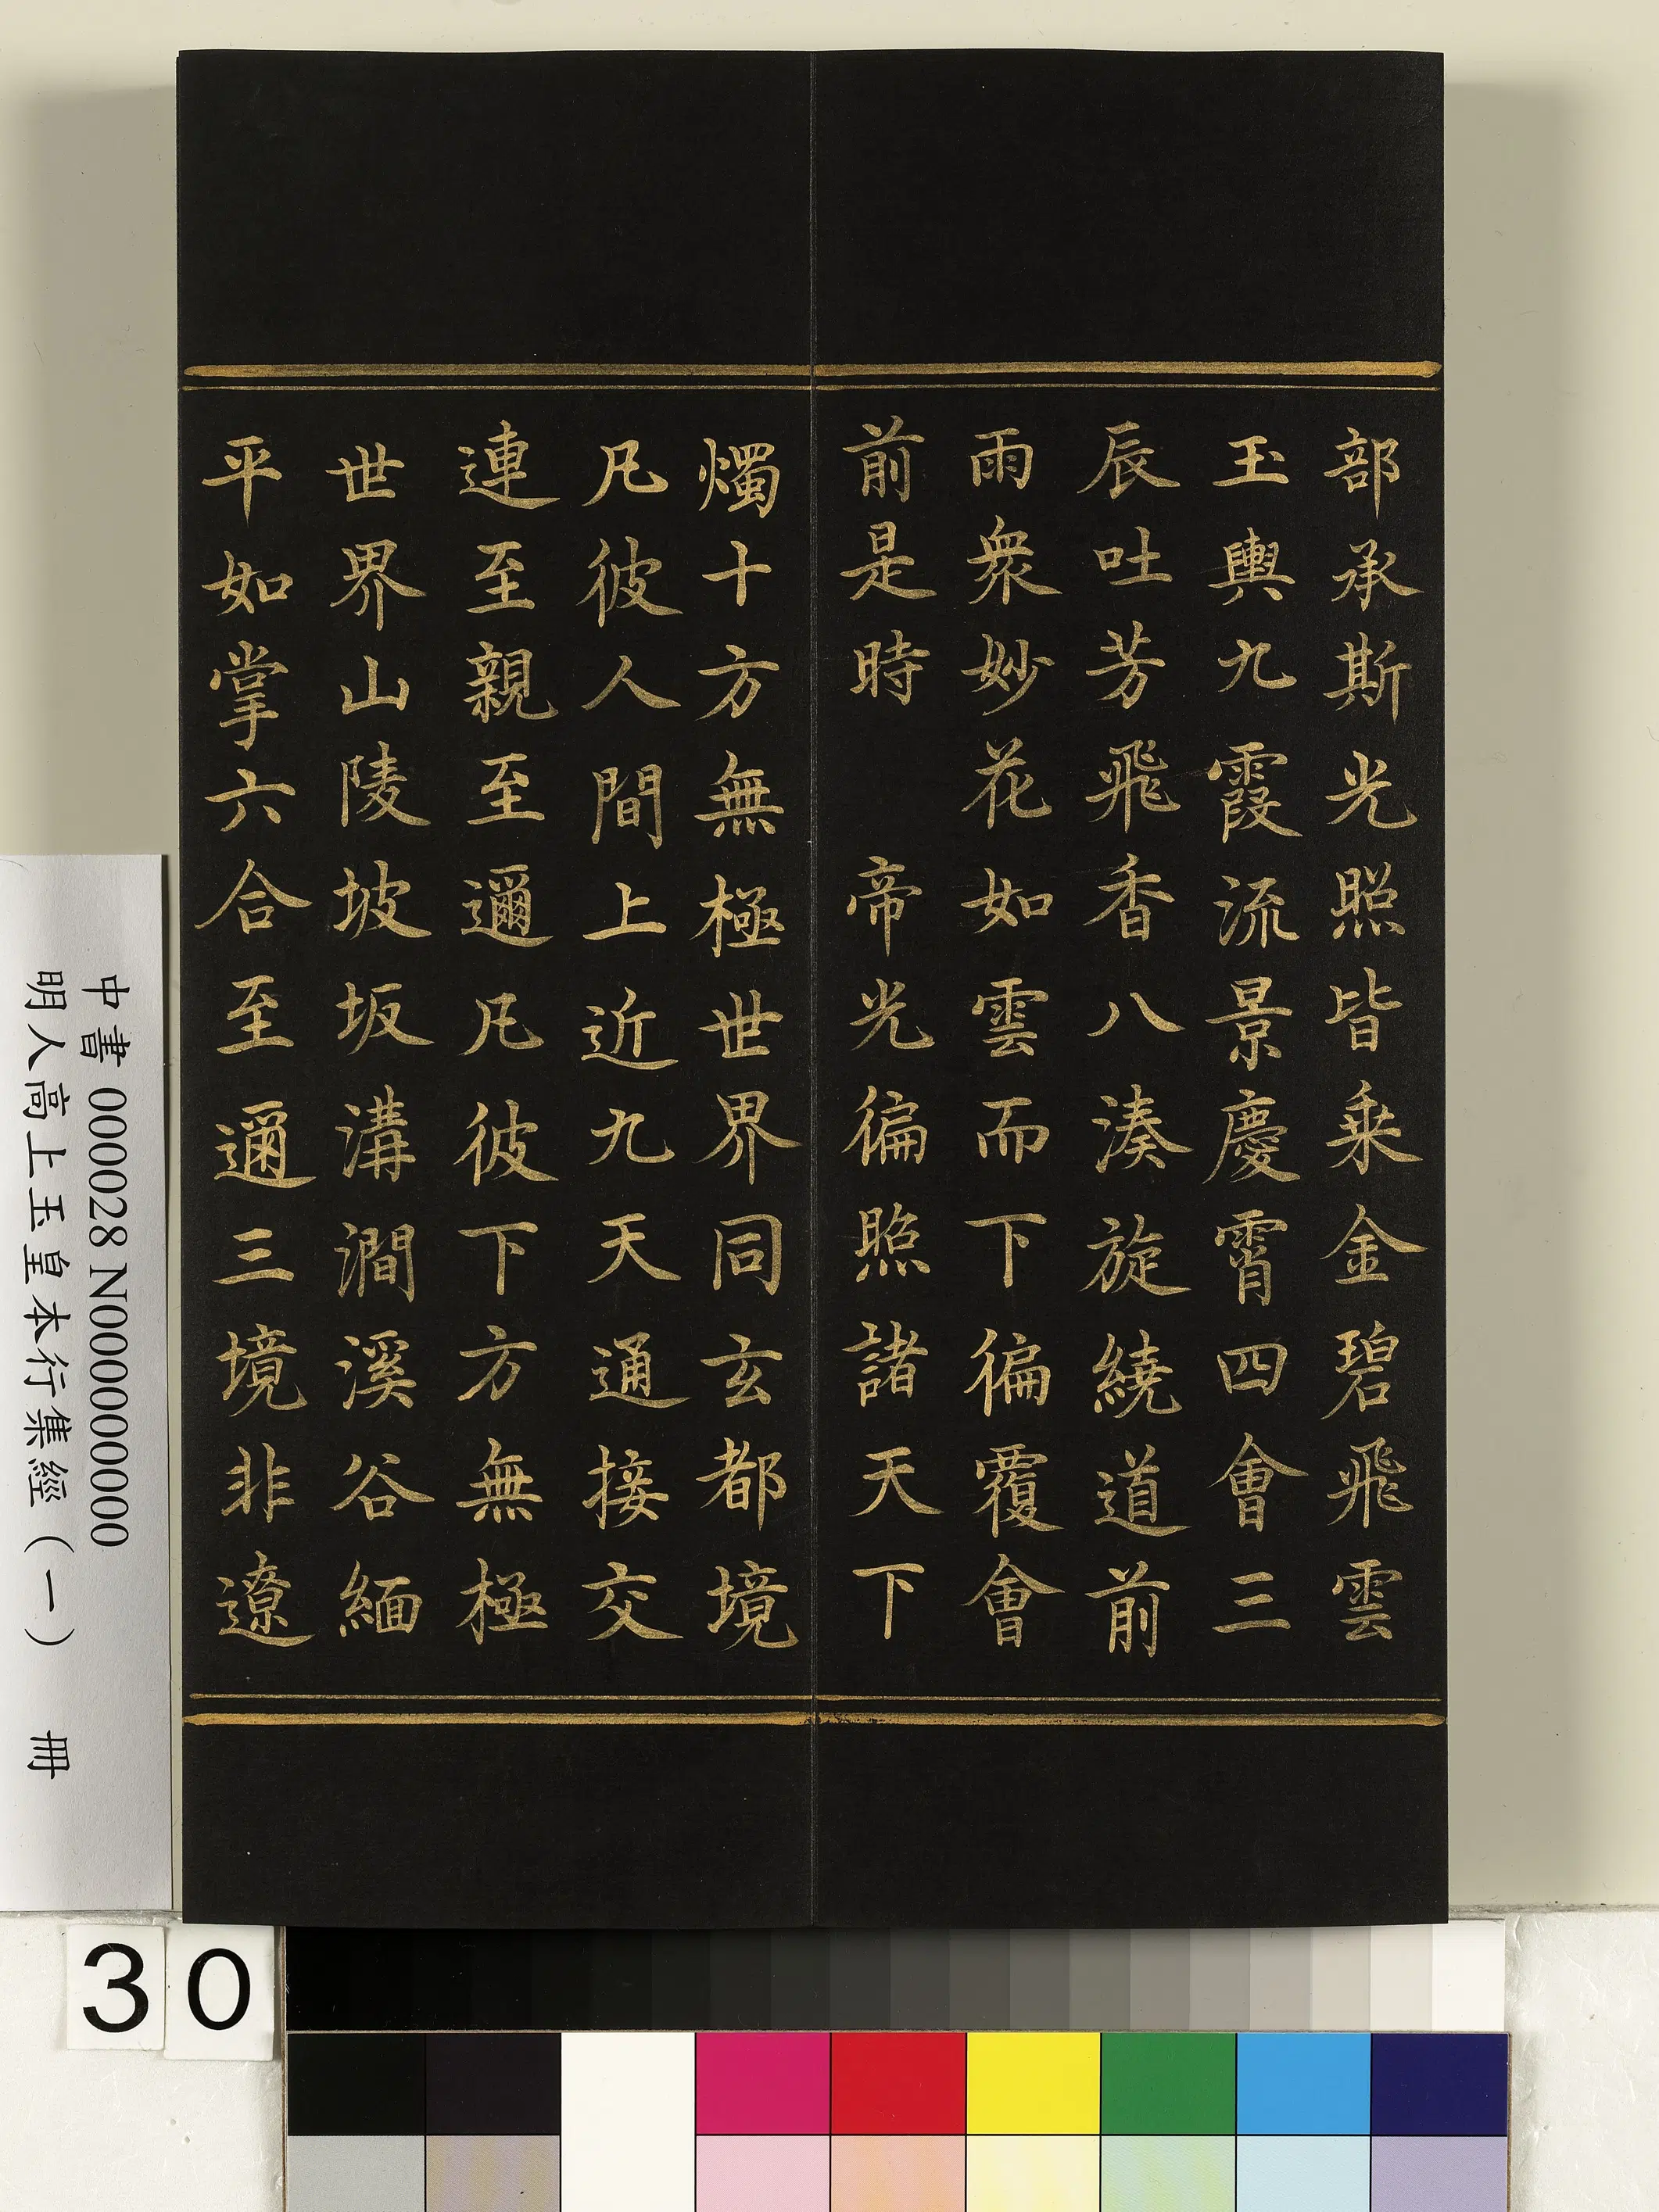 部承斯光照皆乗金碧飛雲
玉輿九霞流景慶霄四會三
辰吐芳飛香八湊旋繞道前
雨衆妙花如雲而下徧覆會
前是時　帝光徧照諸天下
燭十方無極世界同玄都境
凡彼人間上近九天通接交
連至親至邇凡彼下方無極
世界山陵坡坂溝澗溪谷緬
平如掌六合至邇三境非遼
中書 000028 N000000000
明人高上玉皇本行集經（一） 冊
30